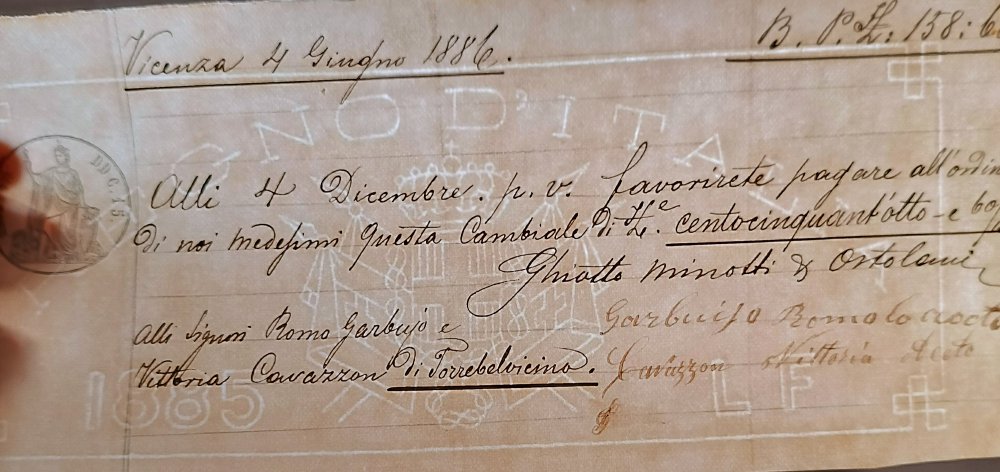 Vicenza 4 Giugno 1886.
B. P. £: 158: 60
REGNO D'ITALIA
DDC. 15
Alli 4 Dicembre. p. v. favorirete pagare all'ordin
di noi medesimi questa Cambiale di £.e centocinquant'otto e 60/
Ghiotto Minotti & Ortolani
Alli Signori Romo Garbujo e
Vittoria Cavazzon di Torrebelvicino.
Garbuiso Romolo
Cavazzon Vittoria
1885
1877
L F